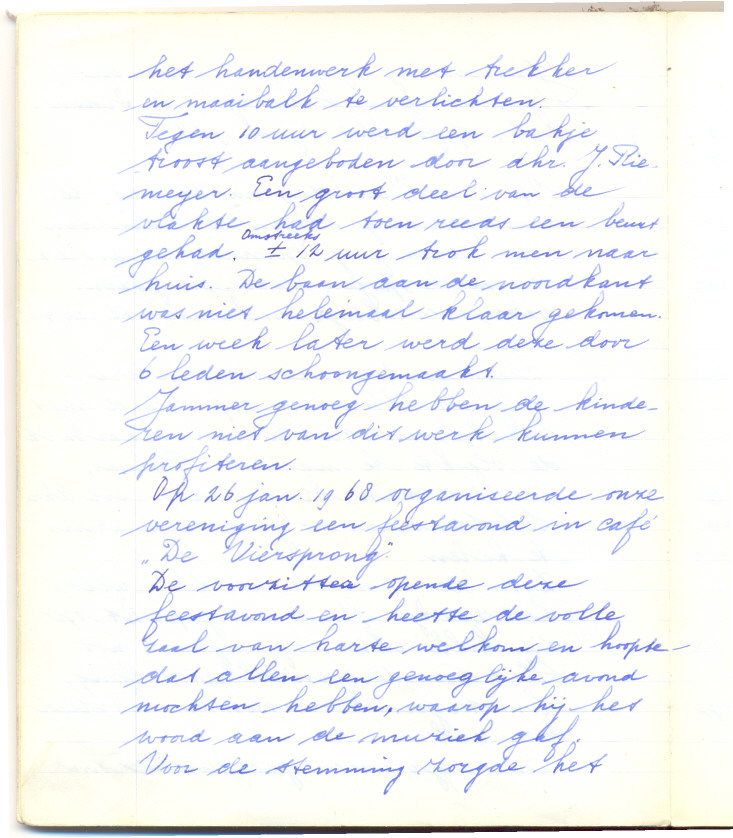 het handenwerk met trekker
en maaibalk te verlichten.
Tegen 10 uur werd een bakje
troost aangeboden door dhr. J. Rie-
meyer. Een groot deel van de
vlakte had toen reeds een beurt
gehad. Omstreeks ± 12 uur trok men naar
huis. De baan aan de noordkant
was niet helemaal klaar gekomen.
Een week later werd deze door
6 leden schoongemaakt.
Jammer genoeg hebben de kinde-
ren niet van dit werk kunnen
profiteren.
Op 26 jan. 1968 organiseerde onze
vereniging een feestavond in café
„De Viersprong".
De voorzitter opende deze
feestavond en heette de volle
zaal van harte welkom en hoopte
dat allen een genoeglijke avond
mochten hebben, waarop hij het
woord aan de muziek gaf.
Voor de stemming zorgde het